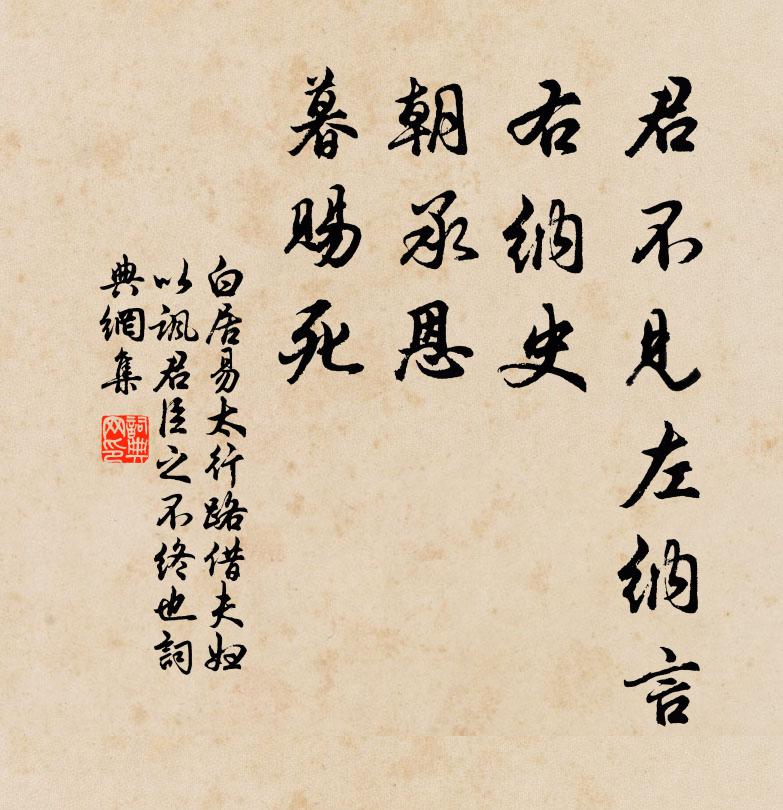 君不見左納言
右納史
朝承恩
暮賜死
白居易太行路借夫婦
以諷君臣之不終也詞
典網集
詞典網印